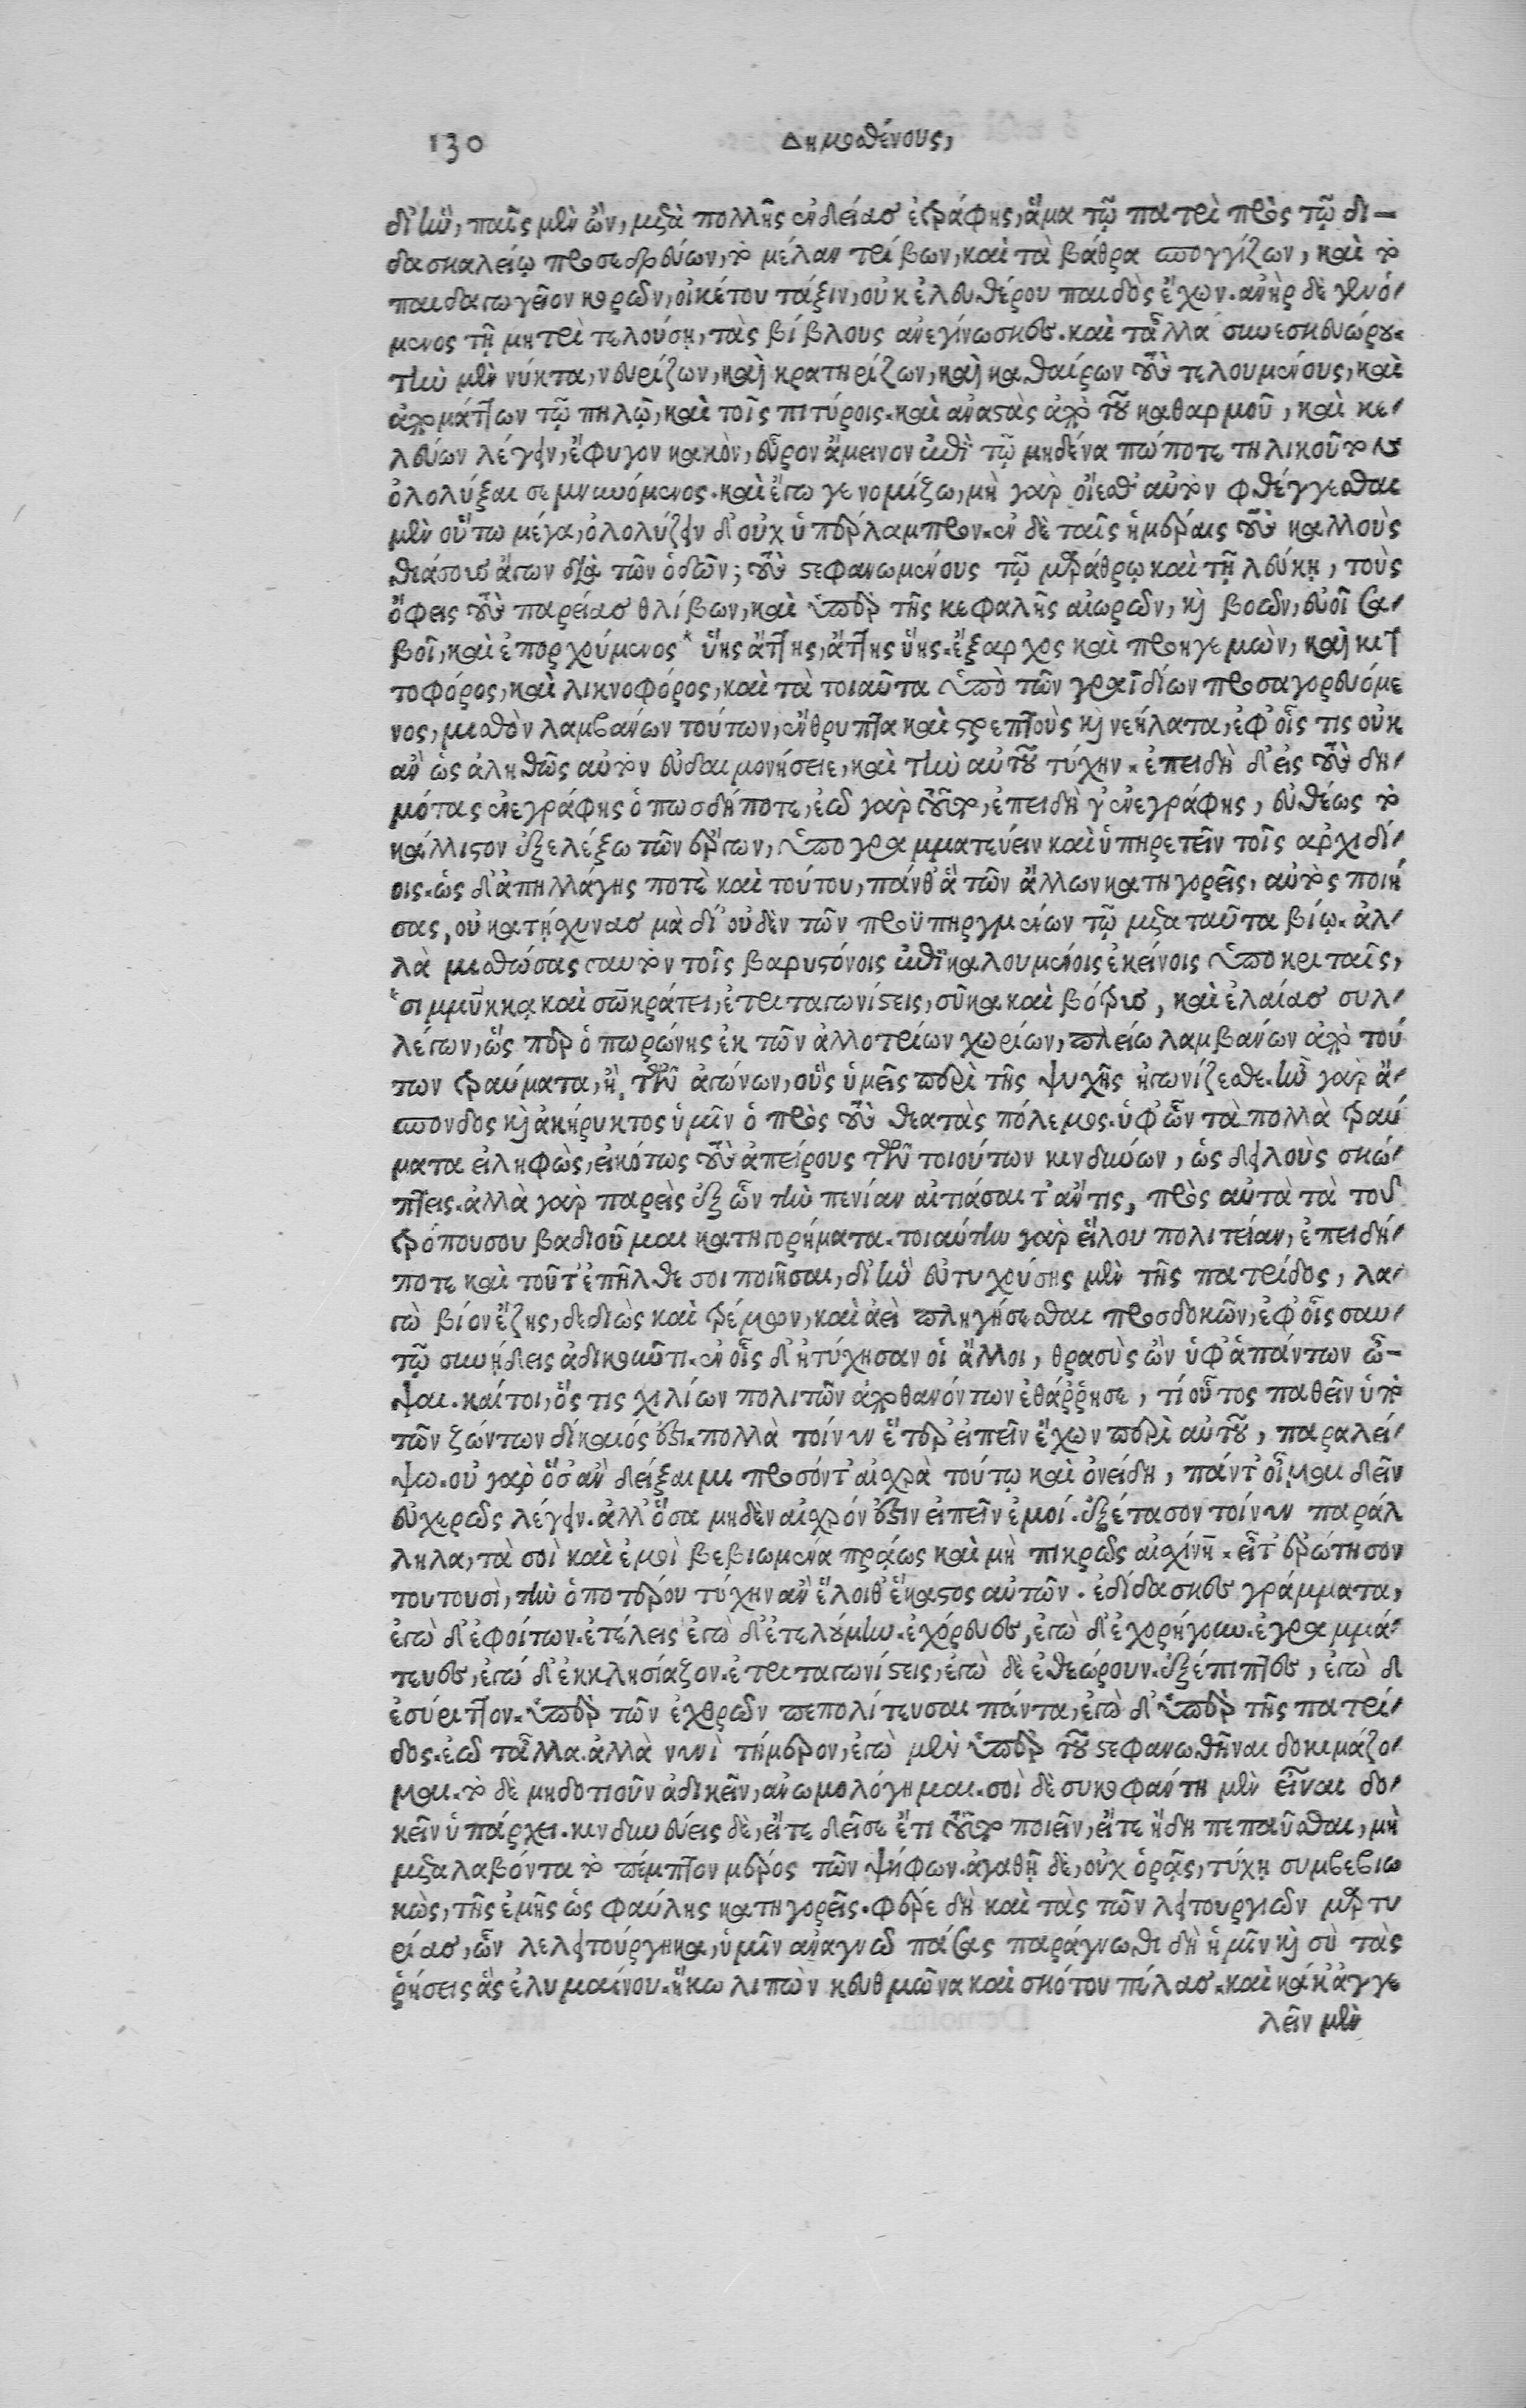 130 Δημοσθένους,
δι' ἣν, παῖς μὲν ὢν, μετὰ πολλῆς ἐνδείας ἐτράφης, ἅμα τῷ πατρὶ πρὸς τῷ δι-
δασκαλείῳ προσεδρεύων, τὸ μέλαν τρίβων, καὶ τὰ βάθρα σπογγίζων, καὶ τὸ
παιδαγωγεῖον κορῶν, οἰκέτου τάξιν, οὐκ ἐλευθέρου παιδὸς ἔχων. ἀνὴρ δὲ γενό-
μενος τῇ μητρὶ τελούσῃ, τὰς βίβλους ἀνεγίνωσκες. καὶ τἆλλα συνεσκευώρου.
τὴν μὲν νύκτα, νευρίζων, καὶ κρατηρίζων, καὶ καθαίρων τοὺς τελουμένους, καὶ
ἀπομάττων τῷ πηλῷ, καὶ τοῖς πιτύροις. καὶ ἀναστὰς ἀπὸ τοῦ καθαρμοῦ, καὶ κε-
λεύων λέγειν, ἔφυγον κακὸν, εὗρον ἄμεινον ἐπὶ τῷ μηδένα πώποτε τηλικοῦτον
ὀλολύξαι σεμνυνόμενος. καὶ ἔγωγε νομίζω, μὴ γὰρ οἴεσθ' αὐτὸν φθέγγεσθαι
μὲν οὕτω μέγα, ὀλολύζειν δ' οὐχ ὑπέρλαμπρον. ἐν δὲ ταῖς ἡμέραις τοὺς καλλοὺς
θιάσους ἄγων διὰ τῶν ὁδῶν; τοὺς στεφανωμένους τῷ μαράθρῳ καὶ τῇ λεύκῃ, τοὺς
ὄφεις τοὺς παρείας θλίβων, καὶ ὑπὲρ τῆς κεφαλῆς αἰωρῶν, κὶ βοῶν, εὐοῖ σα-
βοῖ, καὶ ἐπορχούμενος* ὕης ἄττης, ἄττης ὕης. ἔξαρχος καὶ προηγεμὼν, καὶ κιτ
τοφόρος, καὶ λικνοφόρος, καὶ τὰ τοιαῦτα ὑπὸ τῶν γραϊδίων προσαγορευόμε
νος, μισθὸν λαμβάνων τούτων, ἔνθρυπτα καὶ στρεπτοὺς κὶ νεήλατα, ἐφ' οἷς τις οὐκ
ἂν ὡς ἀληθῶς αὐτὸν εὐδαιμονήσειε, καὶ τὴν αὐτοῦ τύχην. ἐπειδὴ δ' εἰς τοὺς δη-
μότας ἐνεγράφης ὁπωσδήποτε, ἐῶ γὰρ τοῦτο, ἐπειδὴ γ' ἐνεγράφης, εὐθέως τὸ
κάλλιστον ἐξελέξω τῶν ἔργων, ὑπογραμματεύειν καὶ ὑπηρετεῖν τοῖς ἀρχιδί-
οις. ὡς δ' ἀπηλλάγης ποτὲ καὶ τούτου, πάνθ' ἃ τῶν ἄλλων κατηγορεῖς, αὐτὸς ποιή
σας, οὐ κατῄσχυνας μὰ δί' οὐδὲν τῶν προϋπηργμένων τῷ μετὰ ταῦτα βίῳ. ἀλ-
λὰ μισθώσας σαυτὸν τοῖς βαρυστόνοις ἐπικαλουμένοις ἐκείνοις ὑποκριταῖς,
*σιμμύκκᾳ καὶ σωκράτει, ἐτριταγωνίστεις, σῦκα καὶ βότρυς, καὶ ἐλαίας συλ-
λέγων, ὥσπερ ὀπωρώνης ἐκ τῶν ἀλλοτρίων χωρίων, πλείω λαμβάνων ἀπὸ τού
των τραύματα, ἢ τῶν ἀγώνων, οὓς ὑμεῖς περὶ τῆς ψυχῆς ἠγωνίζεσθε. ἦν γὰρ ἄ-
σπονδος κὶ ἀκήρυκτος ὑμῖν ὁ πρὸς τοὺς θεατὰς πόλεμος. ὑφ' ὧν τὰ πολλὰ τραύ
ματα εἰληφὼς, εἰκότως τοὺς ἀπείρους τῶν τοιούτων κινδύνων, ὡς δειλοὺς σκώ-
πτεις. ἀλλὰ γὰρ παρεὶς ἐξ ὧν τὴν πενίαν αἰτιάσαιτ' ἄν τις, πρὸς αὐτὰ τὰ τοῦ
τρόπου σου βαδιοῦμαι κατηγορήματα. τοιαύτην γὰρ εἵλου πολιτείαν, ἐπειδή-
ποτε καὶ τοῦτ' ἐπῆλθε σοι ποιῆσαι, δι' ἣν εὐτυχούσης μὲν τῆς πατρίδος, λα-
γὼ βίον ἔζης, δεδιὼς καὶ τρέμων, καὶ ἀεὶ πληγήσεσθαι προσδοκῶν, ἐφ' οἷς σαυ-
τῷ συνῄδεις ἀδικοῦντι. ἐν οἷς δ' ἠτύχησαν οἱ ἄλλοι, θρασὺς ὢν ὑφ' ἁπάντων ὦ-
ψαι. καίτοι, ὅς τις χιλίων πολιτῶν ἀποθανόντων ἐθάῤῥησε, τί οὗτος παθεῖν ὑπὸ
τῶν ζώντων δίκαιός ἐστι. πολλὰ τοίνυν ἕτερ' εἰπεῖν ἔχων περὶ αὐτοῦ, παραλεί-
ψω. οὐ γὰρ ὅσ' ἂν δείξαιμι προσόντ' αἰσχρὰ τούτῳ καὶ ὀνείδη, πάντ' οἶμαι δεῖν
εὐχερῶς λέγειν. ἀλλ' ὅσα μηδὲν αἰσχρόν ἐστιν εἰπεῖν ἐμοί. ἐξέτασον τοίνυν παράλ
ληλα, τὰ σοὶ καὶ ἐμοὶ βεβιωμένα πρᾴως καὶ μὴ πικρῶς αἰσχίνη. εἶτ' ἐρώτησον
τουτουσὶ, τὴν ὁποτέρου τύχην ἂν ἕλοιθ' ἕκαστος αὐτῶν. ἐδίδασκες γράμματα,
ἐγὼ δ' ἐφοίτων. ἐτέλεις ἐγὼ δ' ἐτελούμην. ἐχόρευες, ἐγὼ δ' ἐχορήγουν. ἐγραμμά-
τευες, ἐγώ δ' ἐκκλησίαζον. ἐτριταγωνίστεις, ἐγὼ δὲ ἐθεώρουν. ἐξέπιπτες, ἐγὼ δ
ἐσύριττον. ὑπὲρ τῶν ἐχθρῶν πεπολίτευσαι πάντα, ἐγὼ δ' ὑπὲρ τῆς πατρί-
δος. ἐῶ τἆλλα. ἀλλὰ νυνὶ τήμερον, ἐγὼ μὲν ὑπὲρ τοῦ στεφανωθῆναι δοκιμάζο-
μαι. τὸ δὲ μηδοτιοῦν ἀδικεῖν, ἀνωμολόγημαι. σοὶ δὲ συκοφάντῃ μὲν εἶναι δο-
κεῖν ὑπάρχει. κινδυνεύεις δὲ, εἴτε δεῖ σε ἔτι τοῦτο ποιεῖν, εἴτε ἤδη πεπαῦσθαι, μὴ
μεταλαβόντα τὸ πέμπτον μέρος τῶν ψήφων. ἀγαθῇ δὲ, οὐχ ὁρᾷς, τύχῃ συμβεβιω
κὼς, τῆς ἐμῆς ὡς φαύλης κατηγορεῖς. φέρε δὴ καὶ τὰς τῶν λειτουργιῶν μαρτυ
ρίας, ὧν λελειτούργηκα, ὑμῖν ἀναγνῶ πάσας παράγνωθι δὴ ἡμῖν κὶ σὺ τὰς
ῥήσεις ἃς ἐλυμαίνου. ἥκω λιπὼν κευθμῶνα καὶ σκότου πύλας. καὶ κἄκ' ἀγγε
λεῖν μὲν